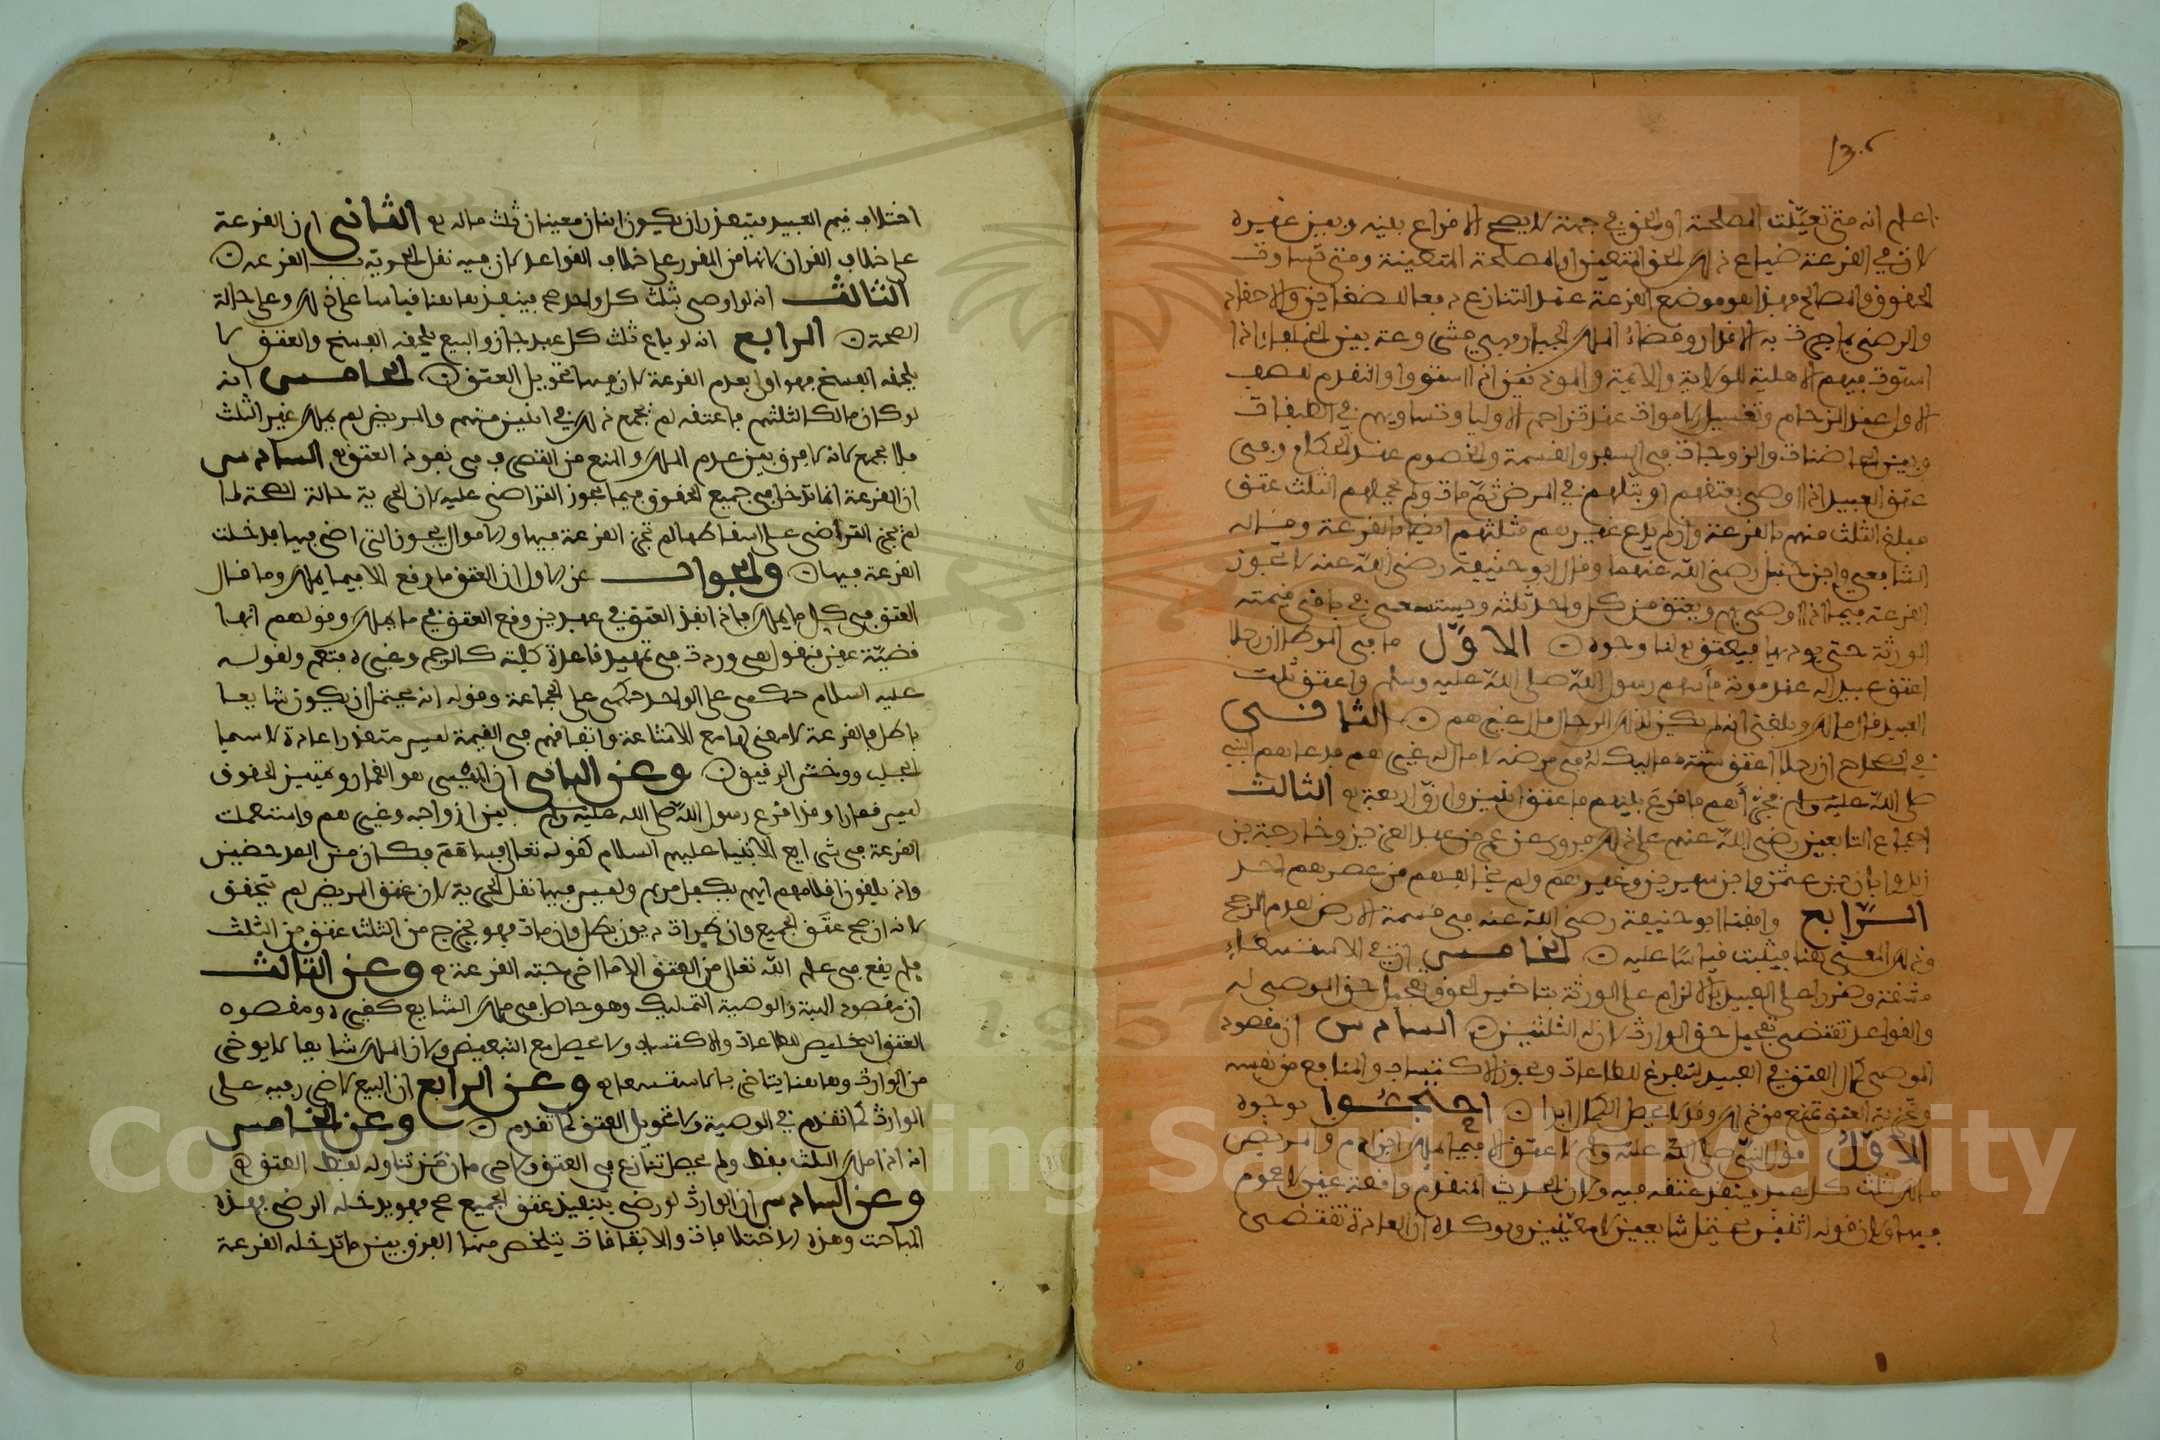 اعلم انه متى تعينت المصلحة او الحق في جهة لا يصح الاقراع بينه وبين غيره
لان في القرعة ضياع ذلك الحق المتعين او المصلحة المتعينة ومتى تساوت
الحقوق والمصالح فهذا هو موضع القرعة عند التنازع دفعا للضغائن والاحقاد
والرضى بما جرت به الاقدار وقضاء الملك الجبار وهي مشروعة بين الخلفاء اذا
استوت فيهم الاهلية للولاية والائمة والموذنين اذا استووا والتقدم للصف
الاول عند الزحام وتغسيل الاموات عند تزاحم الاوليا وتساويهم في الطبقات
وبين الحاضنات والزوجات في السفر والقسمة والخصوم عند الحكام وفي
عتق العبيد اذا اوصى بعتقهم او بتلهم في المرض ثم مات ولم يحملهم الثلث عتق
مبلغ الثلث منهم بالقرعة وان لم يدع غيرهم فثلثهم ايضا بالقرعة وقاله
الشافعي وابن حنبل رضي الله عنهما وقال ابو حنيفة رضي الله عنه لا تجوز
القرعة فيما اذا اوصى بهم ويعتق من كل واحد ثلثه ويستسعى في باقي قيمته
الورثة حتى يوديها فيعتق لنا وجوه الاول ما في الموطا ان رجلا
اعتق عبيدا له عند موته فاسهم رسول الله صلى الله عليه وسلم واعتق ثلث
العبيد قال مالك وبلغني انه لم يكن لذلك الرجل مال غيرهم الثاني
في الصحاح ان رجلا اعتق ستة مماليك له في مرضه لا مال له غيرهم فدعاهم النبي
صلى الله عليه وسلم فجزاهم فاقرع بينهم فاعتق اثنين وارق اربعة الثالث
اجماع التابعين رضي الله عنهم على ذلك مروي عن عمر بن عبد العزيز وخارجة بن
زيد وابان بن عثمن وابن سيرين وغيرهم ولم يخالفهم من عصرهم احد
الرابع وافقنا ابو حنيفة رضي الله عنه في قسمة الارض لعدم المرجح
وذلك المعنى هنا فيثبت قياسا عليه الخامس ان في الاستسعاء
مشقة وضررا على العبيد بالالزام وعلى الورثة بتاخير الحق وتعجيل حق الموصى له
والقواعد تقتضي تعجيل حق الوارث لان له الثلثين السادس ان مقصود
الموصي كمال العتق في العبيد ليتفرغ للطاعات ويجوز الاكتساب والمنافع من نفسه
وتجزية العتق تمنع من ذلك وقد لا يحصل الكمال ابدا احتجوا بوجوه
الاول قول النبي صلى الله عليه وسلم لا عتق الا فيما يملك ابن ادم والمريض
مالك ثلث كل عبد فينفذ عتقه فيه ولان الحديث المتقدم واقعة عين لا عموم
فيها ولان قوله اثنين يحتمل شايعين لا معينين ويوكده ان العادة تقتضي
اختلاف قيم العبيد فيتعذر ان يكون اثنان معينان ثلث ماله الثاني ان القرعة
على خلاف القران لانها من القمار وعلى خلاف القواعد لان فيه نقل الحرية بالقرعة
الثالث انه لو اوصى بثلث كل واحد صح فينفذ هاهنا قياسا على ذلك وعلى حالة
الصحة الرابع انه لو باع ثلث كل عبد جاز والبيع يلحقه الفسخ والعتق لا
يلحقه الفسخ فهو اولى بعدم القرعة لان فيها تحويل العتق الخامس انه
لو كان مالكا لثلثهم فاعتقه لم يجمع ذلك في اثنين منهم والمريض لم يملك غير الثلث
فلا يجمع لانه لا فرق بين عدم الملك والمنع من التصرف في نفوذ العتق السادس
ان القرعة انما تدخل في جميع الحقوق فيما يجوز التراضي عليه لان الحرية حالة الصحة لما
لم يجز التراضي على اسقاطها لم تجز القرعة فيها والاموال يجوز التراضي فيها فدخلت
القرعة فيها والجواب عن الاول ان العتق ما وقع الا فيما يملك وما قال
العتق في كل ما يملك فاذا نفذ العتق في عبدين وقع العتق في ما يملك وقولهم انها
قضية عين فنقول هي وردت في تمهيد قاعدة كلية كالرجم وغيره فتعم ولقوله
عليه السلام حكمي على الواحد حكمي على الجماعة وقوله انه يحتمل ان يكون شايعا
باطل بالقرعة لا معنى لها مع الاشاعة واتفاقهم في القيمة ليس متعذرا عادة لاسيما
الجلب ووخش الرقيق وعن الثاني ان الميسر هو القمار وتمييز الحقوق
ليس قمارا وقد اقرع رسول الله صلى الله عليه وسلم بين ازواجه وغيرهم واستعملت
القرعة في شرايع الانبيا عليهم السلام لقوله تعالى فساهم فكان من المدحضين
واذ يلقون اقلامهم ايهم يكفل مريم وليس فيها نقل الحرية لان عتق المريض لم يتحقق
لانه ان صح عتق الجميع وان طرات ديون بطل وان مات وهو يخرج من الثلث عتق من الثلث
فلم يقع في علم الله تعالى من العتق الا ما اخرجته القرعة وعن الثالث
ان مقصود الهبة والوصية التمليك وهو حاصل في ملك الشايع كغيره ومقصود
العتق التخليص للطاعات والاكتساب ولا يحصل مع التبعيض ولان الملك شايعا لا يوخر
حق الوارث وهاهنا يتاخر بالاستسعاء وعن الرابع ان البيع لا ضرر فيه على
الوارث كما تقدم في الوصية ولا تحويل للعتق كما تقدم وعن الخامس
انه اذا ملك الثلث فقط ولم يحصل تنازع في العتق ولا حرمان من تناوله لفظ العتق
وعن السادس ان الوارث لو رضي بتنفيذ عتق الجميع صح فهو يدخله الرضى بهذه
المباحث وهذه الاختلافات والاتفاقات يتلخص منها الفرق بين ما تدخله القرعة
Copyright © King Saud University
1957